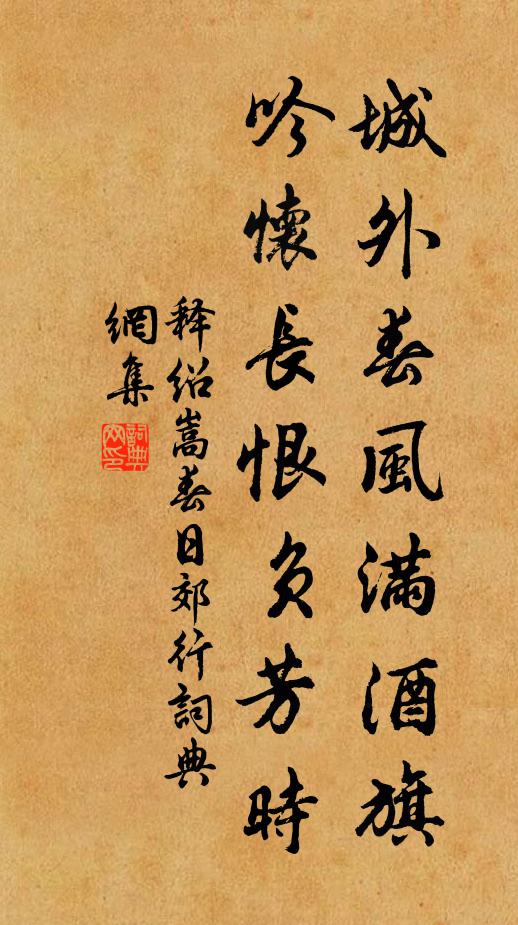 城外春風滿酒旗
吟懷長恨負芳時
释绍嵩春日郊行詞典
網集
詞典
网印